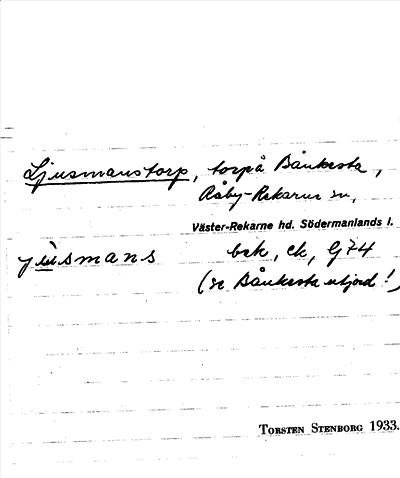 Ljusmanstorp, torp å Bånkesta,
Råby-Rekarne sn,
Väster-Rekarne hd. Södermanlands l.
jùsmans bek, ek, G74
(se Bånkesta utjord!)
TORSTEN STENBORG 1933.